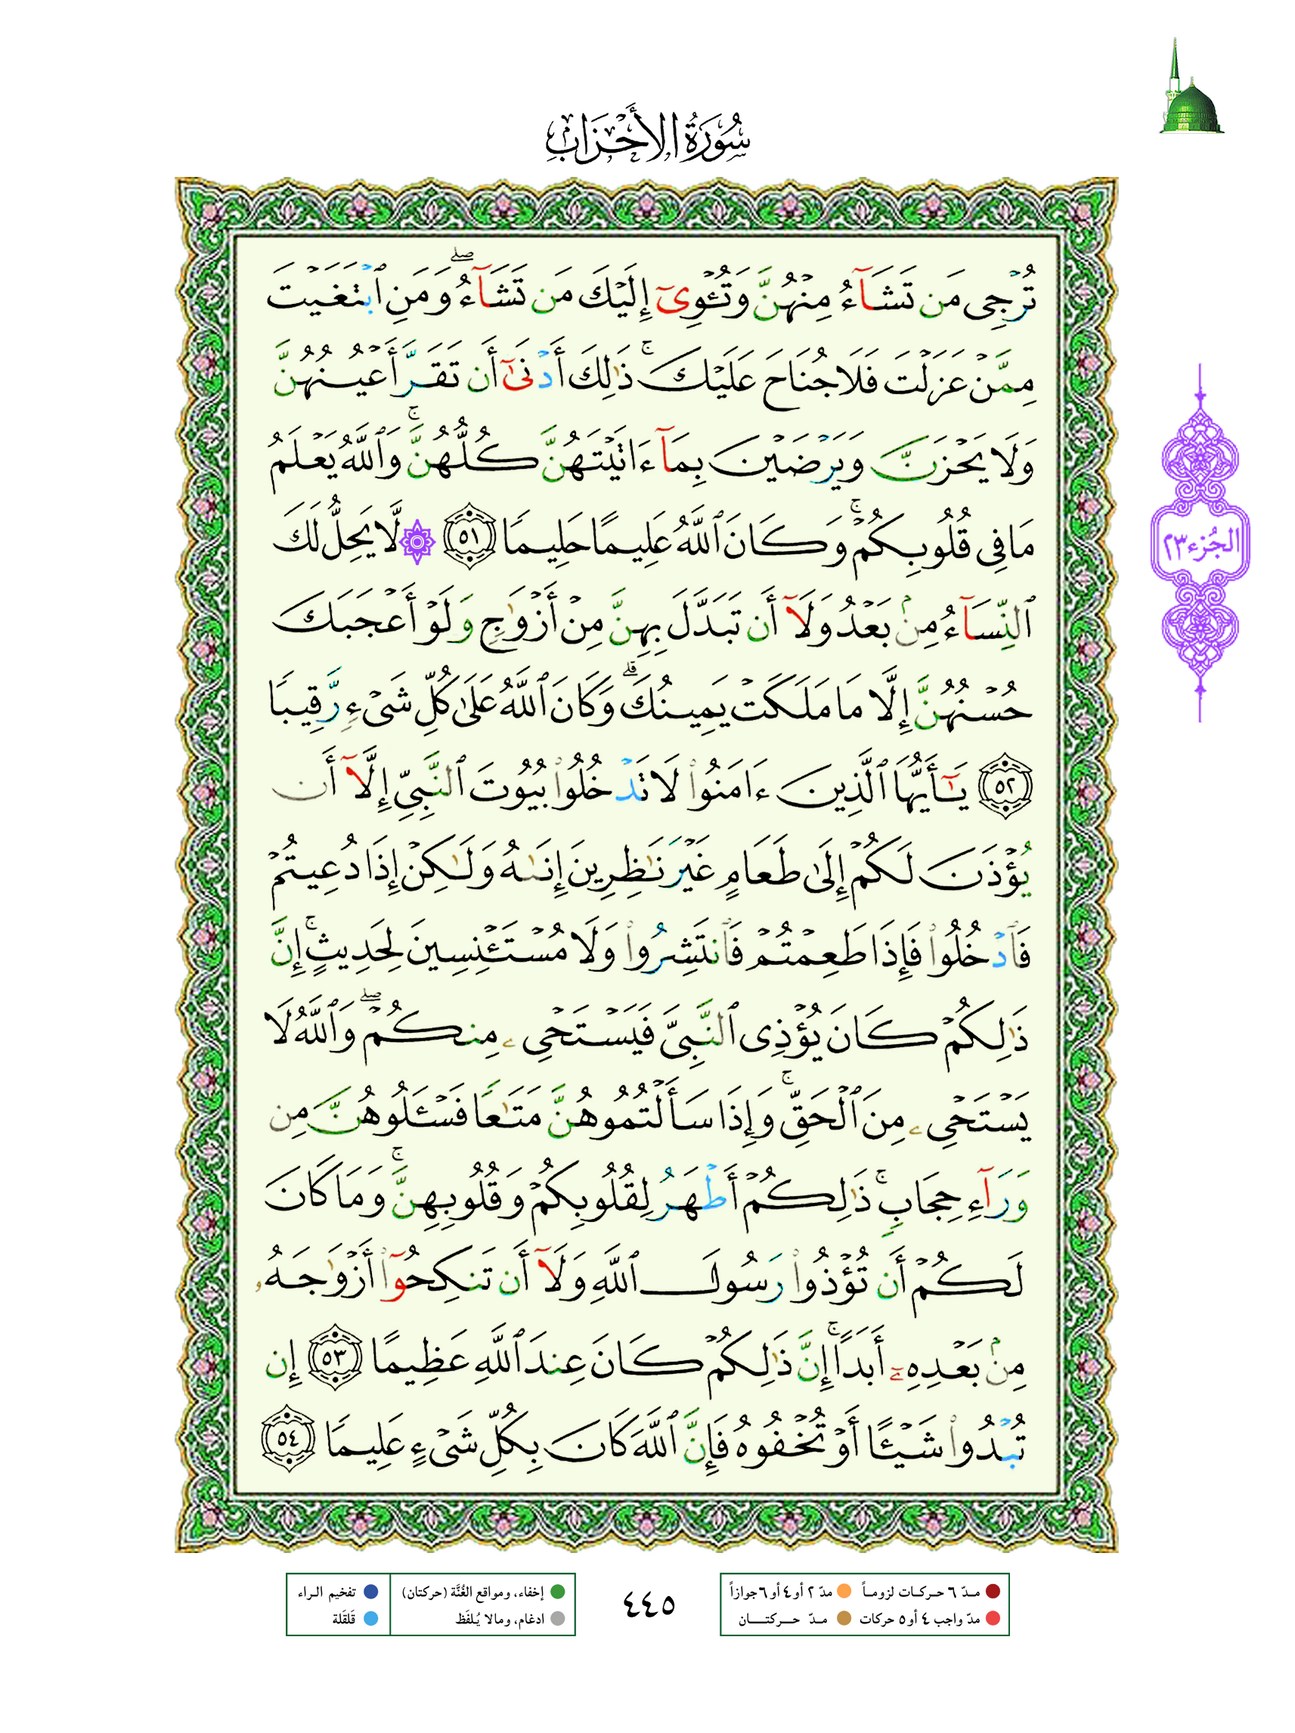 سُورَةُ الأَحْزَابِ
تُرْجِى مَن تَشَآءُ مِنْهُنَّ وَتُـْٔوِىٓ إِلَيْكَ مَن تَشَآءُ ۖ وَمَنِ ٱبْتَغَيْتَ
مِمَّنْ عَزَلْتَ فَلَا جُنَاحَ عَلَيْكَ ۚ ذَٰلِكَ أَدْنَىٰٓ أَن تَقَرَّ أَعْيُنُهُنَّ
وَلَا يَحْزَنَّ وَيَرْضَيْنَ بِمَآ ءَاتَيْتَهُنَّ كُلُّهُنَّ ۚ وَٱللَّهُ يَعْلَمُ
مَا فِى قُلُوبِكُمْ ۚ وَكَانَ ٱللَّهُ عَلِيمًا حَلِيمًا ٥١ لَّا يَحِلُّ لَكَ
ٱلنِّسَآءُ مِنۢ بَعْدُ وَلَآ أَن تَبَدَّلَ بِهِنَّ مِنْ أَزْوَٰجٍ وَلَوْ أَعْجَبَكَ
حُسْنُهُنَّ إِلَّا مَا مَلَكَتْ يَمِينُكَ ۗ وَكَانَ ٱللَّهُ عَلَىٰ كُلِّ شَىْءٍ رَّقِيبًا
٥٢ يَـٰٓأَيُّهَا ٱلَّذِينَ ءَامَنُوا۟ لَا تَدْخُلُوا۟ بُيُوتَ ٱلنَّبِىِّ إِلَّآ أَن
يُؤْذَنَ لَكُمْ إِلَىٰ طَعَامٍ غَيْرَ نَـٰظِرِينَ إِنَىٰهُ وَلَـٰكِنْ إِذَا دُعِيتُمْ
فَٱدْخُلُوا۟ فَإِذَا طَعِمْتُمْ فَٱنتَشِرُوا۟ وَلَا مُسْتَـْٔنِسِينَ لِحَدِيثٍ ۚ إِنَّ
ذَٰلِكُمْ كَانَ يُؤْذِى ٱلنَّبِىَّ فَيَسْتَحْىِۦ مِنكُمْ ۖ وَٱللَّهُ لَا
يَسْتَحْىِۦ مِنَ ٱلْحَقِّ ۚ وَإِذَا سَأَلْتُمُوهُنَّ مَتَـٰعًا فَسْـَٔلُوهُنَّ مِن
وَرَآءِ حِجَابٍ ۚ ذَٰلِكُمْ أَطْهَرُ لِقُلُوبِكُمْ وَقُلُوبِهِنَّ ۚ وَمَا كَانَ
لَكُمْ أَن تُؤْذُوا۟ رَسُولَ ٱللَّهِ وَلَآ أَن تَنكِحُوٓا۟ أَزْوَٰجَهُۥ
مِنۢ بَعْدِهِۦٓ أَبَدًا ۚ إِنَّ ذَٰلِكُمْ كَانَ عِندَ ٱللَّهِ عَظِيمًا ٥٣ إِن
تُبْدُوا۟ شَيْـًٔا أَوْ تُخْفُوهُ فَإِنَّ ٱللَّهَ كَانَ بِكُلِّ شَىْءٍ عَلِيمًا ٥٤
الجُزء ٢٣
مـدّ ٦ حـركـات لزومـاً
مدّ ٢ أو ٤ أو ٦ جوازاً
مدّ واجب ٤ أو ٥ حركات
مـدّ حــركتـــان
٤٤٥
إخفاء، ومواقع الغُنَّة (حركتان)
تفخيم الراء
ادغام، ومالا يُـلفَظ
قَلقَلة